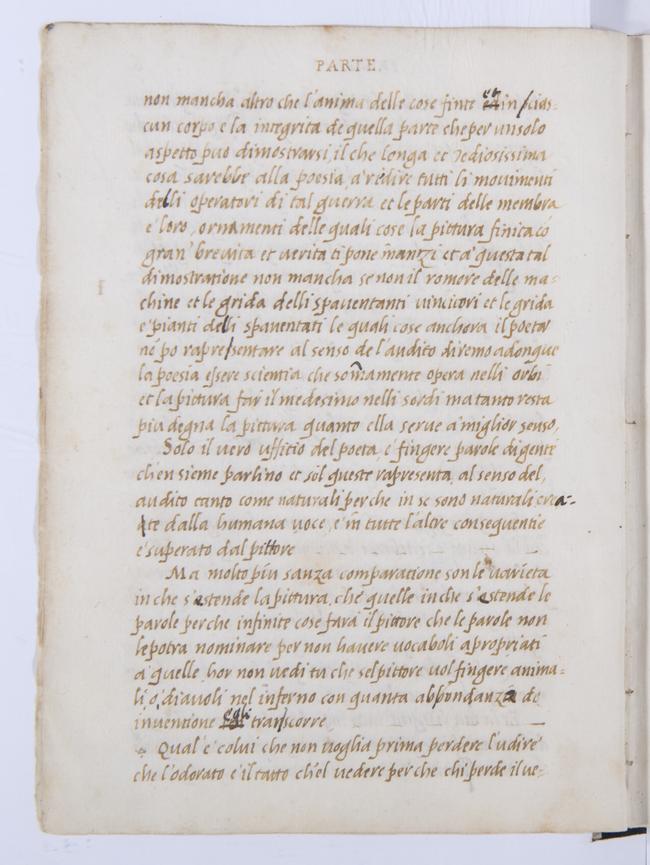 PARTE
non mancha altro che l'anima delle cose finte et in cias-
cun corpo e la integrita de quella parte che per un solo
aspetto puo dimostrarsi, il che longa et tediosissima
cosa sarebbe alla poesia, a redire tutti li movimenti
delli operatori di tal guerra et le parti delle membra
e loro, ornamenti delle quali cose la pittura finita cō
gran' brevita et verita ti pone innanzi et a' questa tal
dimostratione non mancha se non il romore delle ma-
chine et le grida delli spaventanti vincitori et le grida
e' pianti delli spaventati le quali cose anchora il poeta
nō po rapresentare al senso de l'audito diremo adonque
la poesia essere scientia che som̄amente opera nelli orbi
et la pittura far il medesimo nelli sordi ma tanto resta
piu degna la pittura quanto ella serve a' miglior senso,
Solo il vero uffitio del poeta, e' fingere parole di gente
ch'en sieme parlino et sol queste rapresenta al senso del,
audito tanto come naturali perche in se sono naturali crea-
te dalla humana voce, e' in tutte l'altre consequentie
e' superato dal pittore
Ma molto piu sanza comparatione son le varieta
in che s'estende la pittura, che quelle in che s'estende le
parole perche infinite cose fara il pittore che le parole non
le potra nominare per non havere vocaboli apropriati
a' quelle, hor non vedi tu che se'l pittore vol fingere anima-
li o' diavoli nel inferno con quanta abbondanza de
inventione egli transcorre
Qual e' colui che non voglia prima perdere l'udire
che l'odorato e' il tatto ch'el vedere perche chi perde il ve-